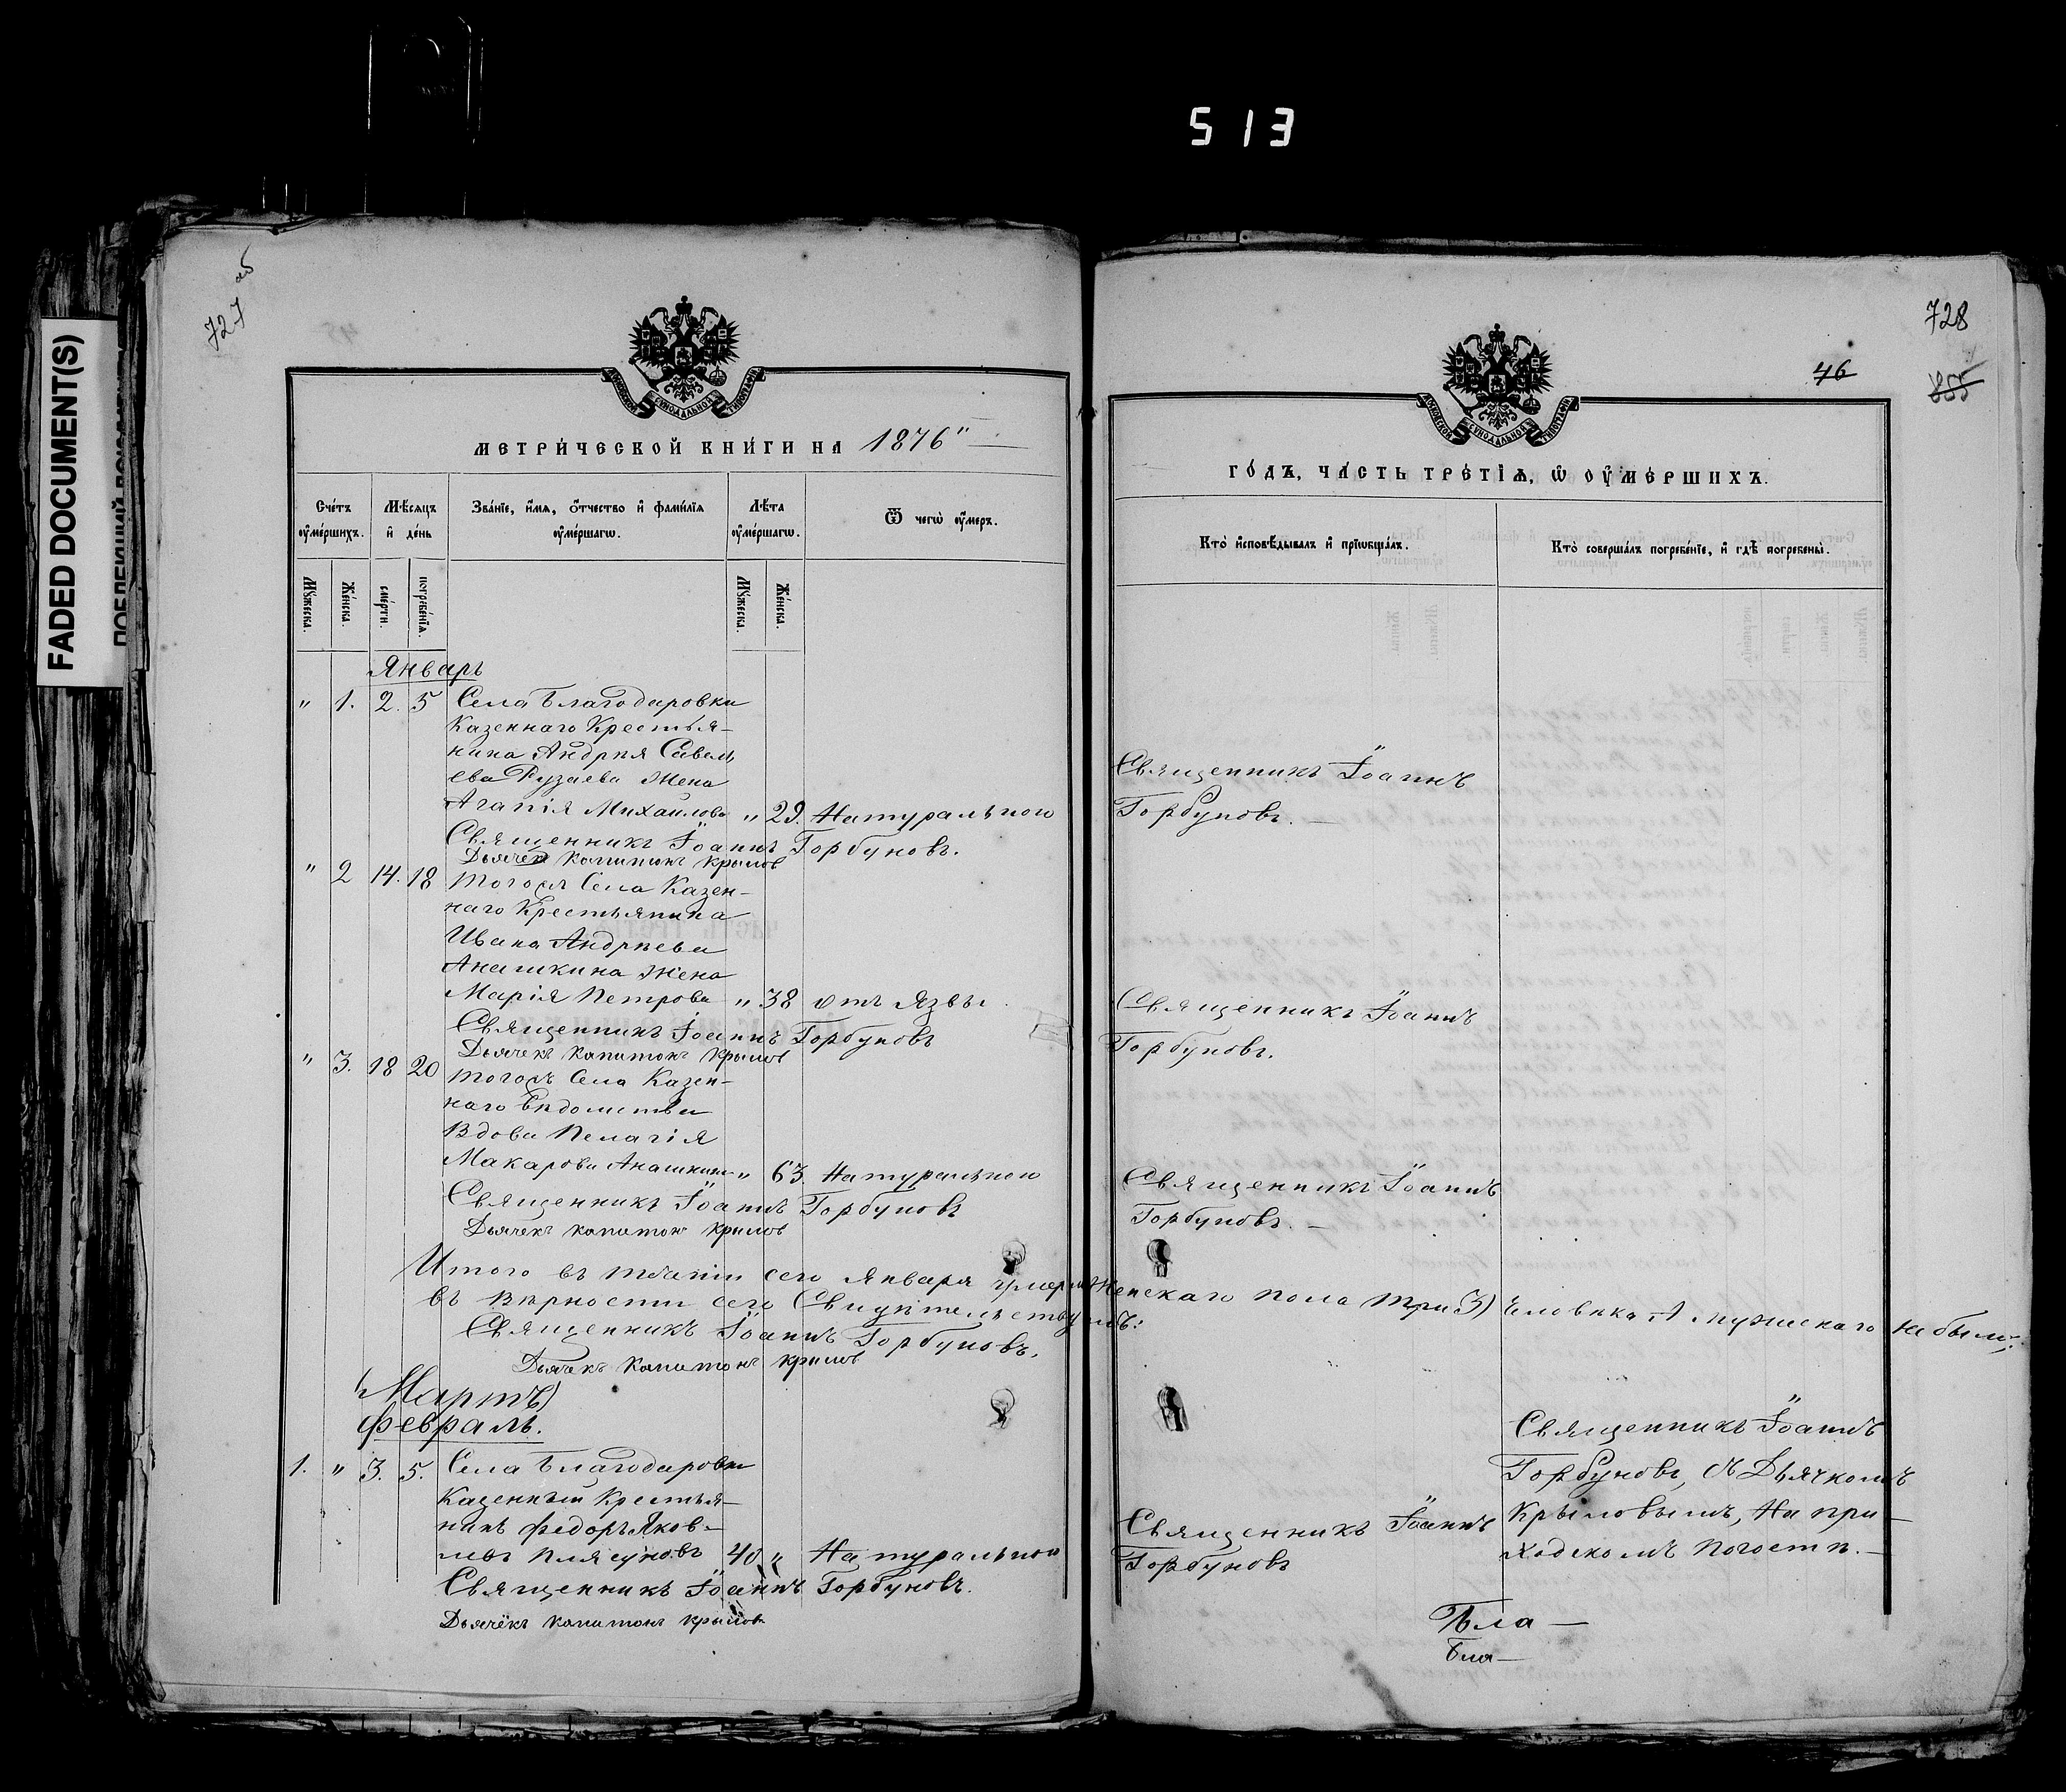 513
FADED DOCUMENT(S)
727 об
МЕТРИ́ЧЕСКОЙ КНИ́ГИ НА 1876"
Сче́тъ ᲂу҆ме́ршихъ.
Мѣ́сяцъ и҆ де́нь
Зва́нїе, и҆́мѧ, ѻ҆́тчество и҆ фами́лїѧ ᲂу҆ме́ршагѡ.
Лѣ́та ᲂу҆ме́ршагѡ.
Ѿ чегѡ̀ ᲂу҆́меръ.
Мꙋ́жеска.
Же́нска.
сме́рти.
погребе́нїѧ.
Мꙋ́жеска.
Же́нска.
Январь
" 1. 2. 5 Села Благодаровки
Казеннаго Крестья-
нина Андрея Савель
ева Рузаева Жена
Агапія Михайлова " 29. Натурального
Священникъ Іоаннъ Горбуновъ.
Дьячекъ Капитонъ Крыловъ
" 2 14. 18 Тогожъ Села Казен-
наго Крестьянина
Ивана Андреева
Анашкина Жена
Марія Петрова " 38 отъ Язвы
Священникъ Іоаннъ Горбуновъ
Дьячекъ Капитонъ Крыловъ
" 3. 18 20 Тогожъ Села Казен-
наго Вѣдомства
Вдова Пелагія
Макарова Анашкина " 63. Натурального
Священникъ Іоаннъ Горбуновъ
Дьячекъ Капитонъ Крыловъ
Итого въ теченіи сего Января умерло Женскаго пола три 3) человѣка А мужескаго не было;
въ вѣрности сего Свидѣтельствуемъ:
Священникъ Іоаннъ Горбуновъ.
Дьячекъ Капитонъ Крыловъ
(Мартъ)
Февраль.
1. " 3. 5. Села Благодаровки
Казенный Крестья-
нинъ Федоръ Яков-
левъ Плясуновъ 40 " Натурального
Священникъ Іоаннъ Горбуновъ.
Дьячёкъ Капитонъ Крыловъ
728
46
855
ГО́ДЪ, ЧА́СТЬ ТРЕ́ТЇѦ, Ѡ҆ ОУ҆МЕ́РШИХЪ.
Кто̀ и҆сповѣ́дывалъ и҆ прїѡбща́лъ.
Кто̀ соверша́лъ погребе́нїе, и҆ гдѣ̀ погребены̀.
Священникъ Іоаннъ
Горбуновъ.
Священникъ Іоаннъ
Горбуновъ.
Священникъ Іоаннъ
Горбуновъ.
Священникъ Іоаннъ
Горбуновъ
Священникъ Іоаннъ
Горбуновъ, съ Дьячкомъ
Крыловымъ, На при-
ходскомъ Погостѣ.
Бла —
Бла —